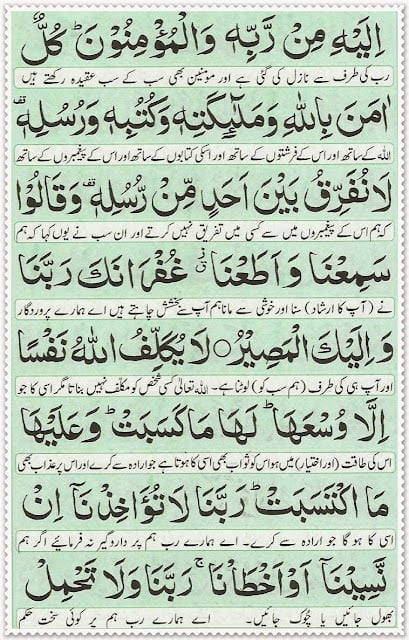 اِلَیْهِ مِنْ رَّبِّهٖ وَالْمُؤْمِنُوْنَ ؕ كُلٌّ
رب کی طرف سے نازل کی گئی ہے اور مومنین بھی سب کے سب عقیدہ رکھتے ہیں
اٰمَنَ بِاللّٰهِ وَمَلٰٓئِكَتِهٖ وَكُتُبِهٖ وَرُسُلِهٖ ۟
اللہ کے ساتھ اور اس کے فرشتوں کے ساتھ اور اسکی کتابوں کے ساتھ اور اس کے پیغمبروں کے ساتھ
لَا نُفَرِّقُ بَیْنَ اَحَدٍ مِّنْ رُّسُلِهٖ ۟ وَقَالُوْا
کہ ہم اس کے پیغمبروں میں سے کسی میں تفریق نہیں کرتے اور ان سب نے یوں کہا کہ ہم
سَمِعْنَا وَاَطَعْنَا ۫ غُفْرَانَكَ رَبَّنَا
نے (آپ کا ارشاد) سنا اور خوشی سے مانا ہم آپ سے بخشش چاہتے ہیں اے ہمارے پروردگار
وَاِلَیْكَ الْمَصِیْرُ ○ لَا یُكَلِّفُ اللّٰهُ نَفْسًا
اور آپ ہی کی طرف (ہم سب کو) لوٹنا ہے۔ اللہ تعالیٰ کسی شخص کو مکلف نہیں بناتا مگر اسی کا جو
اِلَّا وُسْعَهَا ؕ لَهَا مَا كَسَبَتْ وَعَلَیْهَا
اس کی طاقت (اور اختیار) میں ہو اس کو ثواب بھی اسی کا ہوتا ہے جو ارادہ سے کرے اور اس پر عذاب بھی
مَا اكْتَسَبَتْ ؕ رَبَّنَا لَا تُؤَاخِذْنَاۤ اِنْ
اسی کا ہو گا جو ارادہ سے کرے۔ اے ہمارے رب ہم پر داروگیر نہ فرمائیے اگر ہم
نَّسِیْنَاۤ اَوْ اَخْطَاْنَا ۚ رَبَّنَا وَلَا تَحْمِلْ
بھول جائیں یا چُوک جائیں۔ اے ہمارے رب ہم پر کوئی سخت حکم